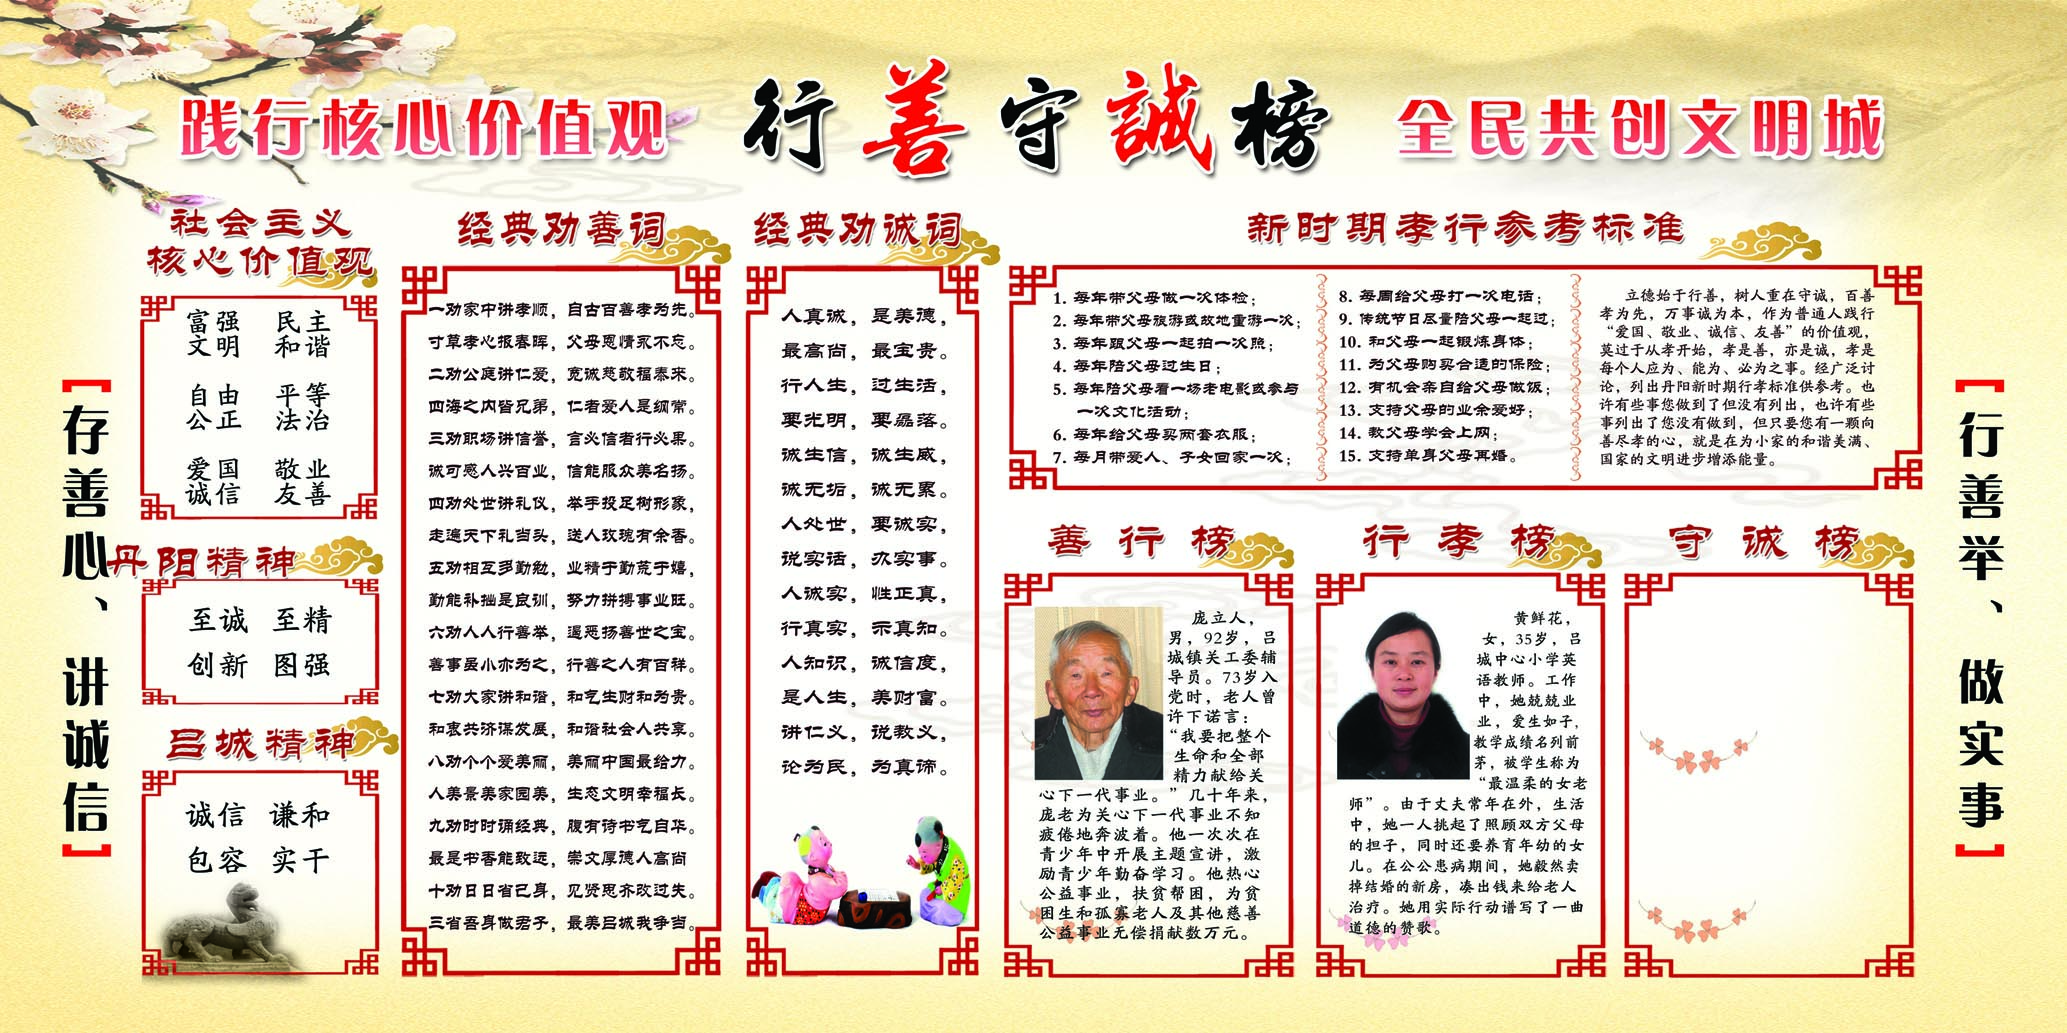 践行核心价值观
行善守誠榜
全民共创文明城
[存善心、讲诚信]
社会主义
核心价值观
富强 民主
文明 和谐
自由 平等
公正 法治
爱国 敬业
诚信 友善
丹阳精神
至诚 至精
创新 图强
吕城精神
诚信 谦和
包容 实干
经典劝善词
一劝家中讲孝顺，自古百善孝为先。
寸草孝心报春晖，父母恩情永不忘。
二劝公庭讲仁爱，宽诚慈敬福泰来。
四海之内皆兄弟，仁者爱人是纲常。
三劝职场讲信誉，言必信者行必果。
诚可感人兴百业，信能服众美名扬。
四劝处世讲礼仪，举手投足树形象，
走遍天下礼当头，送人玫瑰有余香。
五劝相互多勤勉，业精于勤荒于嬉，
勤能补拙是良训，努力拼搏事业旺。
六劝人人行善举，遏恶扬善世之宝。
善事虽小亦为之，行善之人有百祥。
七劝大家讲和谐，和气生财和为贵。
和衷共济谋发展，和谐社会人共享。
八劝个个爱美丽，美丽中国最给力。
人美景美家园美，生态文明幸福长。
九劝时时诵经典，腹有诗书气自华。
最是书香能致远，崇文厚德人高尚
十劝日日省己身，见贤思齐改过失。
三省吾身做君子，最美吕城我争当。
经典劝诚词
人真诚，是美德，
最高尚，最宝贵。
行人生，过生活，
要光明，要磊落。
诚生信，诚生威，
诚无垢，诚无累。
人处世，要诚实，
说实话，办实事。
人诚实，性正真，
行真实，示真知。
人知识，诚信度，
是人生，美财富。
讲仁义，说教义，
论为民，为真谛。
新时期孝行参考标准
1. 每年带父母做一次体检；
2. 每年带父母旅游或故地重游一次；
3. 每年跟父母一起拍一次照；
4. 每年陪父母过生日；
5. 每年陪父母看一场老电影或参与
一次文化活动；
6. 每年给父母买两套衣服；
7. 每月带爱人、子女回家一次；
8. 每周给父母打一次电话；
9. 传统节日尽量陪父母一起过；
10. 和父母一起锻炼身体；
11. 为父母购买合适的保险；
12. 有机会亲自给父母做饭；
13. 支持父母的业余爱好；
14. 教父母学会上网；
15. 支持单身父母再婚。
立德始于行善，树人重在守诚，百善
孝为先，万事诚为本，作为普通人践行
“爱国、敬业、诚信、友善”的价值观，
莫过于从孝开始，孝是善，亦是诚，孝是
每个人应为、能为、必为之事。经广泛讨
论，列出丹阳新时期行孝标准供参考。也
许有些事您做到了但没有列出，也许有些
事列出了您没有做到，但只要您有一颗向
善尽孝的心，就是在为小家的和谐美满、
国家的文明进步增添能量。
善行榜
庞立人，
男，92岁，吕
城镇关工委辅
导员。73岁入
党时，老人曾
许下诺言：
“我要把整个
生命和全部
精力献给关
心下一代事业。”几十年来，
庞老为关心下一代事业不知
疲倦地奔波着。他一次次在
青少年中开展主题宣讲，激
励青少年勤奋学习。他热心
公益事业，扶贫帮困，为贫
困生和孤寡老人及其他慈善
公益事业无偿捐献数万元。
行孝榜
黄鲜花，
女，35岁，吕
城中心小学英
语教师。工作
中，她兢兢业
业，爱生如子，
教学成绩名列前
茅，被学生称为
“最温柔的女老
师”。由于丈夫常年在外，生活
中，她一人挑起了照顾双方父母
的担子，同时还要养育年幼的女
儿。在公公患病期间，她毅然卖
掉结婚的新房，凑出钱来给老人
治疗。她用实际行动谱写了一曲
道德的赞歌。
守诚榜
[行善举、做实事]